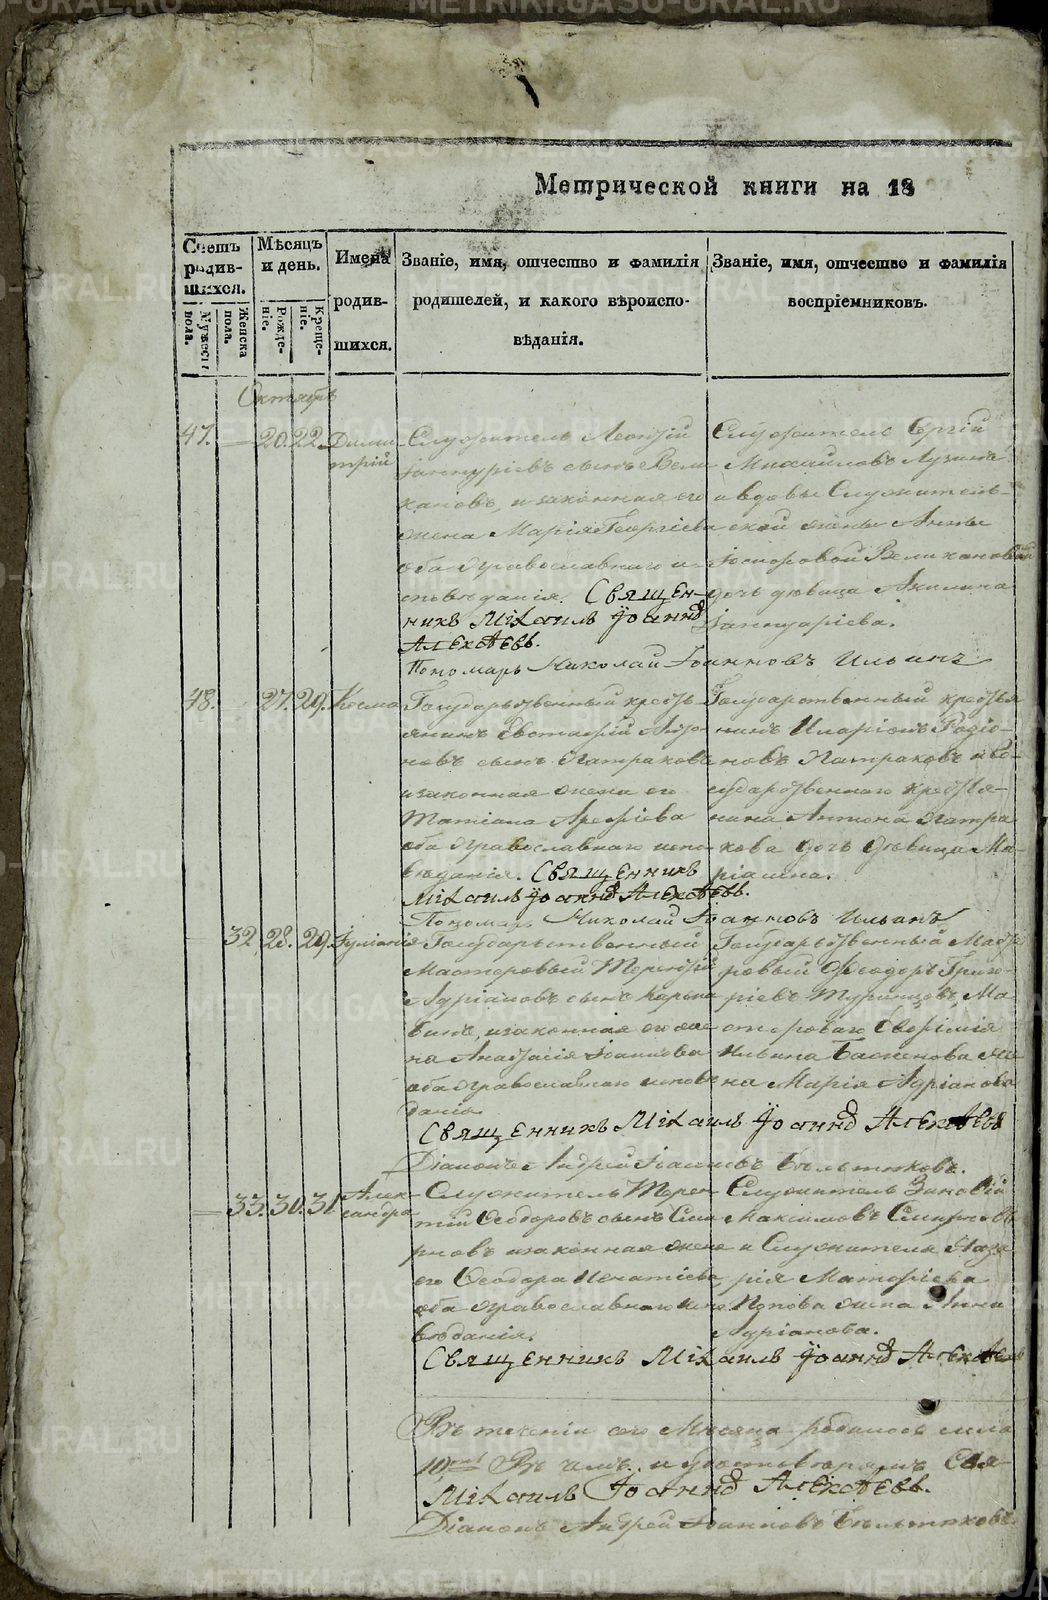 METRIKI.GASO-URAL.RU
Метрической книги на 18
Счетъ родившихся.
Мужеска пола.
Женска пола.
Мѣсяцъ и день.
Рожденіе.
Крещеніе.
Имена родившихся.
Званіе, имя, отчество и фамилія
родителей, и какого вѣроиспо-
вѣданія.
Званіе, имя, отчество и фамилія
воспріемниковъ.
Октябрь
47. 20. 22. Дими-
трій
Служитель Леонтій
сынъ Вели-
кановъ, и законная его
жена Марія Георгіева
оба православнаго и-
сповѣданія. Священ-
никъ Михаилъ Іоаннд
Алексѣевъ.
Пономарь Николай Іоанновъ Ильинъ
Служитель Сергій
Михайловъ Лузинъ
и вдовы Служитель-
ской жены Анны
Великановой
дочь дѣвица Акилина
Іаннуаріева.
48. 27. 29. Косма
Государственный кресть-
янинъ Евстафій
новъ сынъ Патраковъ
и законная жена его
Татіана Арефіева
оба православнаго испо-
вѣданія. Священникъ
Михаилъ Іоаннд Алексѣевъ.
Пономарь Николай Іоанновъ Ильинъ
Государственный крестья-
нинъ Иларіонъ Родіо-
новъ Патраковъ и Го-
сударственнаго крестья-
нина Антона Патра-
кова дочь дѣвица Ма-
ріамна.
32. 28. 29. Іуліанія
Государственный
Мастеровый Терентій
Адріановъ сынъ
и законная его же-
на Анастасія Іоаннова
оба православнаго исповѣ-
данія.
Священникъ Михаилъ Іоаннд Алексѣевъ
Діаконъ Андрей Іоанновъ
Государственный Масте-
ровый Ѳеодоръ Григо-
ріевъ Ма-
стероваго
Ильина Баженова же-
на Марія Адріанова
33. 30. 31. Алек-
сандра
Служитель Терен-
тій Ѳеодоровъ сынъ Сми-
рновъ и законная жена
его Ѳеодора Игнатіева
оба православнаго испо-
вѣданія.
Служитель Зиновій
Максимовъ Смирновъ
и Служителя Наза-
рія
Попова жена Анна
Адріанова.
Священникъ Михаилъ Іоаннд Алексѣевъ
Въ теченіи сего Мѣсяца родилось
10. Въ чемъ и удостовѣряемъ Свя-
Михаилъ Іоаннд Алексѣевъ.
Діаконъ Андрей Іоанновъ